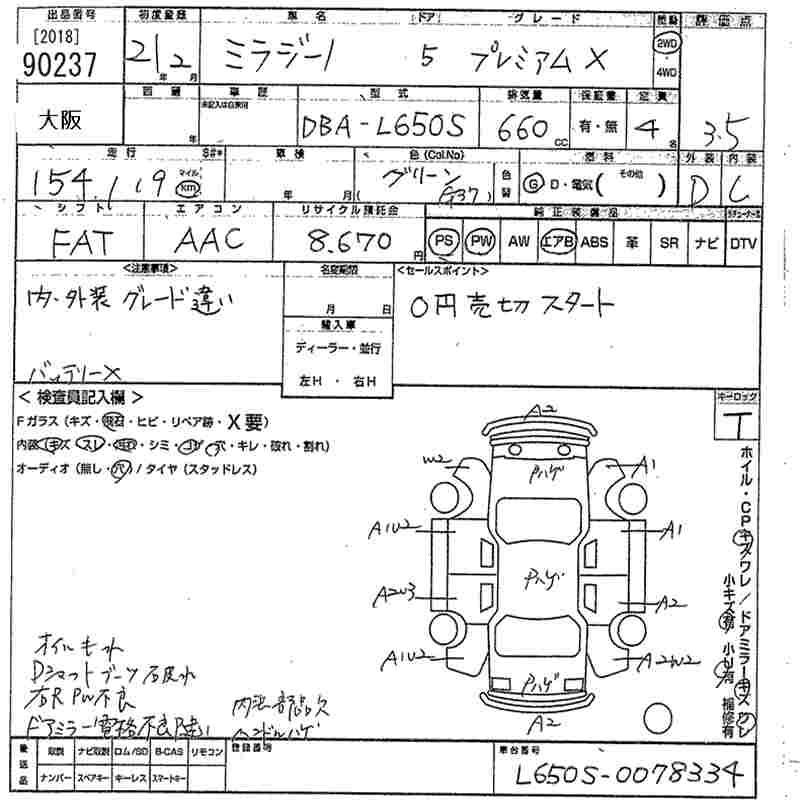 出品番号 初度登録 車名 ドア グレード 駆動 評価点
[2018]
90237 21 年 2 月 ミラジーノ 5 プレミアム X 2WD
4WD
車歴 型式 排気量 保証書 定員
未記入は自家用
大阪 年 DBA-L650S 660 CC 有・無 4 名 3.5
走行 車検 色(Col.No) 色替 燃料 外装 内装
154,119 マイル km 年 月 グリーン ( G37) G D・電気 ( その他 ) D C
シフト エアコン リサイクル預託金 純正装備品
FAT AAC 8,670 円 PS PW AW エアB ABS 革 SR ナビ DTV
<注意事項> 名変期限 <セールスポイント>
内・外装 グレード違い 月 日 0円売切スタート
輸入車
ディーラー・並行
左H ・ 右H
バッテリーX
< 検査員記入欄 > キーロック
Fガラス (キズ・飛石・ヒビ・リペア跡・X要) T
内装 (キズ スレ・汚れ・シミ・コゲ 穴・キレ・破れ・割れ)
オーディオ (無し・穴) / タイヤ (スタッドレス)
A2
W2 Pハゲ A1
A1U2 A1
Pハゲ
A2U3 A2
A1U2 Pハゲ A2W2
A2
ホイル・CPキズワレ / ドアミラーキズワレ
小キズ有 小U有 補修有
オイルモレ
Dシャフトブーツ
右R PW不良
ドアミラー電格不良 違い
内装部品欠
ハンドルハゲ
後送品 取説 ナビ取説 ロム/SD B-CAS リモコン 登録番号 車台番号
ナンバー スペアキー キーレス スマートキー L650S-0078334